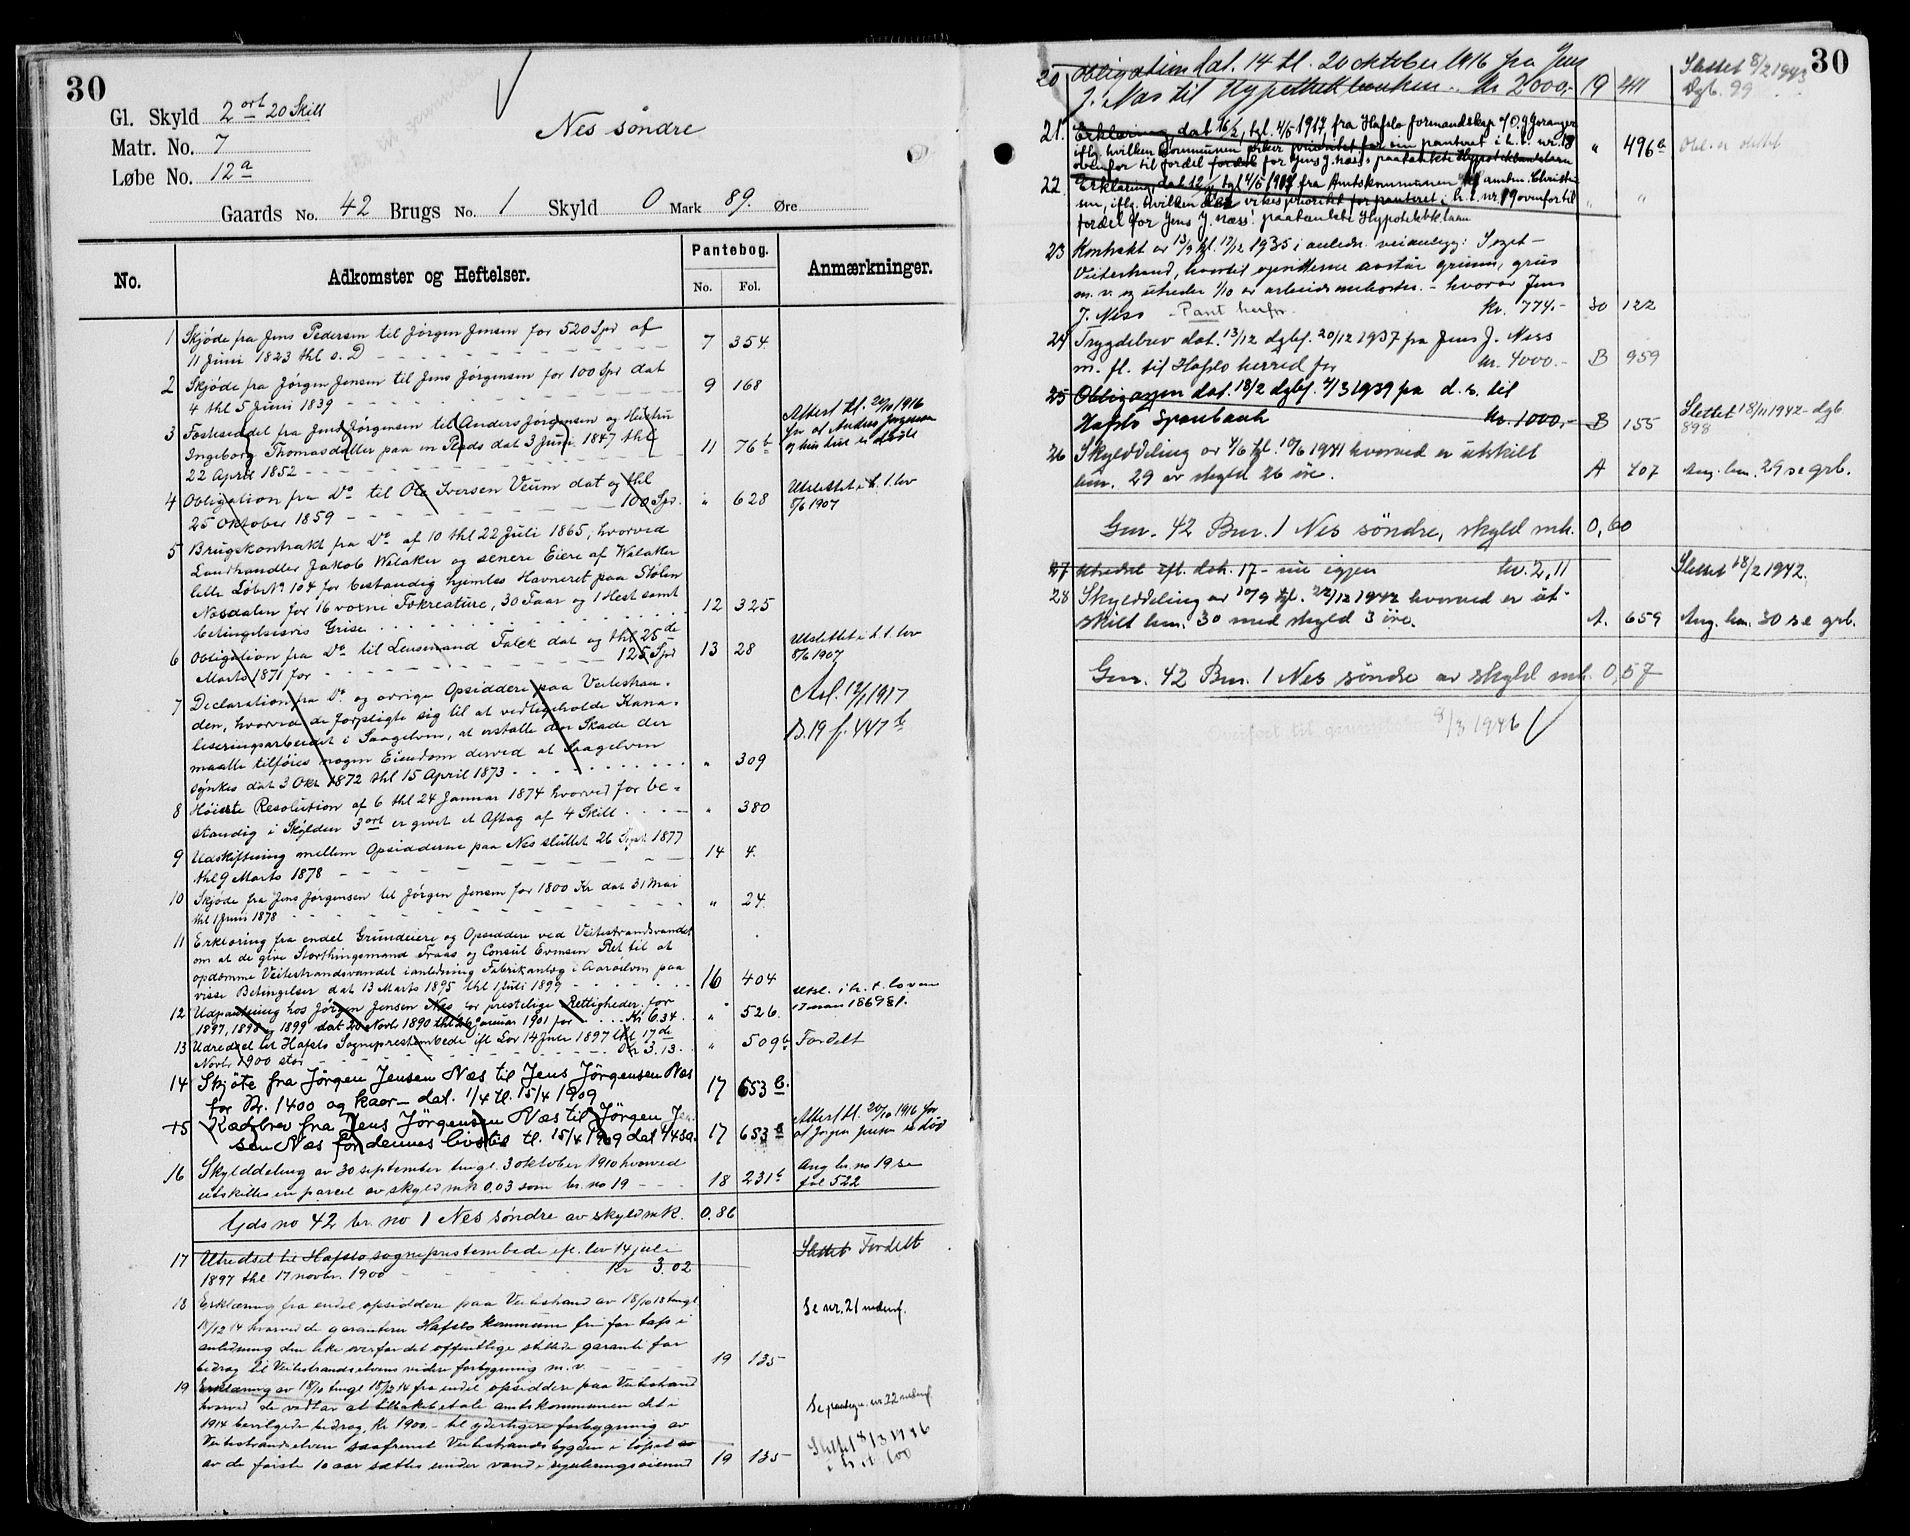 30
Gl. Skyld 2 ort 20 Skill
Matr. No. 7
Løbe No. 12a
Nes söndre
Gaards No. 42 Brugs No. 1 Skyld 0 Mark 89. Øre
No.
Adkomster og Heftelser.
Pantebog.
No. Fol.
Anmærkninger.
1 Skjøde fra Jens Pedersen til Jørgen Jensen for 520 Spd af
11 Juni 1823 thl s. D 7 354
2 Skjøde fra Jørgen Jensen til Jens Jørgensen for 100 Spd dat
4 thl 5 Juni 1839 9 168
3 Festeseddel fra Jens Jørgensen til Anders Jørgensen og Hustru
Ingeborg Thomasdatter paa en Plads dat 3 Juni 1847 thl
22 April 1852 11 76b
Avlest tl. 20/10 1916
for at Anders Jørgensen
og hustru er døde
4 Obligation fra Do til Ole Iversen Veum dat og thl
25 Oktober 1859 100 Spd. " 628
Udslettet i h. t. lov
8/6 1907
5 Brugskontrakt fra Do af 10 thl 22 Juli 1865, hvorved
Landhandler Jakob Walaker og senere Eiere af Walaker
lille Löbe No 104 for bestandig hjemles Havneret paa Stölen
Nosdalen for 16 voxne Fokreature, 30 Faar og 1 Hest samt
betingelsesvis Grise 12 325
6 Obligation fra Do til Lensmand Falck dat og thl 25 de
Marts 1871 for 125 Spd 13 28
Udslettet i h. t. lov
8/6 1907
7 Declaration fra Do og övrige Opsiddere paa Veitestran-
den, hvorved de forpligte sig til at vedligeholde Kana-
liseringsarbeidet i Saagelven, at erstatte den Skade der
maatte tilføies nogen Eiendom derved at Saagelven
synkes dat 3 Okt 1872 thl 15 April 1873 " 309
Asl. 12/1 1917
B. 19 f. 447b
8 Höieste Resolution af 6 thl 24 Januar 1874 hvorved for be-
standig i Skylden 3 ort er givet et Aftag af 4 Skill " 380
9 Udskiftning mellem Opsidderne paa Nes sluttet 26 Sept. 1877
thl 9 Marts 1878 14 4.
10 Skjøde fra Jens Jørgensen til Jørgen Jensen for 1800 Kr dat 31 Mai
thl 1 Juni 1878 " 24.
11 Erklæring fra endel Grundeiere og Opsiddere ved Veitestrandsvandet
om at de give Storthingsmand Fraas og Consul Evensen Ret til at
opdæmme Veitestrandsvandet i anledning Fabrikanlæg i Aaröelven paa
visse Betingelser dat 13 Marts 1895 thl 1 Juli 1899 16 404
12 Udpantning hos Jørgen Jensen Nes for prestelige Rettigheder for
1897, 1898 og 1899 dat 20 Novb. 1890 thl 26 januar 1901 for Kr 6.34. " 526.
Utsl. i h. t. lov av
17 mars 1869 § 1.
13 Udredsel til Hafslo Sogneprestembede ifl Lov 14 Juli 1897 thl 17 de
Novb. 1900 stor Kr 3.13. " 509b Fordelt
14 Skjøte fra Jørgen Jensen Næs til Jens Jörgensen Næs
for Kr. 1400 og kaar - dat. 1/4 tl. 15/4 1909 17 653b.
15 Kaarbrev fra Jens Jörgensen Næs til Jörgen Jen-
sen Næs for dennes livstid tl. 15/4 1909 dat 1/4 s.a. 17 653b
Avlest tl. 20/10 1916 for
at Jørgen Jensen er død
16 Skylddeling av 30 september tingl. 3 oktober 1910 hvorved
utskilles en parcel av skyld mk 0.03 som br. no 19 18 231b
Ang br. no 19 se
fol 522
Gds no 42 br. no 1 Nes söndre av skyld mk. 0.86
17 Utredsel til Hafslo sogneprestembede ifl. lov 14 juli
1897 thl 17 novbr. 1900 Kr 3.02
Slettet Fordelt
18 Erklæring fra endel opsiddere paa Veitestrand av 18/10 13 tingl
18/12 14 hvorved de garanterer Hafslo kommune fri for tap i
anledning den like overfor det offentlige stillede garanti for
bidrag til Veitestrandselvens videre forbygning m. v. 19 135
Se nr. 21 nedenf.
19 Erklæring av 18/10 tingl 18/12 14 fra endel opsiddere paa Veitestrand
hvorved de vedtar at tilbakebetale amtskommunen det i
1914 bevilgede bidrag kr 1900.- til ydertigere forbygning av
Veitestrandselven saafremt Veitestrandsbygden i löpet av
av de förste 10 aar sættes under vand i reguleringsöiemed 19 135
Se paategn. nr 22 nedenf.
Slettet 8/3 1946
30
20 Obligation dat. 14 tl. 20 oktober 1916 fra Jens
J. Næs til Hypothekbanken. Kr 2000,- 19 411
Slettet 8/2 1943
Dgb. 99
21. Erklæring dat 16/2, tgl. 4/5 1917, fra Hafslo formandskap v/ O. J. Joranger
iflg. hvilken kommunen viker prioritet for sin panteret i h. t. nr. 18
ovenfor til fordel for Jens J. Næss paatænkte Hypotekbanklaan " 496b Obl. er slettet
22 Erklæring, dat 12/4, tgl 4/5 1917 fra Amtskommunen ved amtm. Christen-
sen, iflg. hvilken der vikes prioritet for panteret i h. t. nr. 19 ovenfor til
fordel for Jens J. Næss' paatænkte Hypotekbklaan " "
23 Kontrakt av 13/9 tgl. 17/12 1935 i anledn. veianlegg: Soget-
Veitestrand, hvortil opsitterne avstår grunn, grus
m. v. og utreder 1/10 av arbeidsomkostn. - hvorav Jens
J. Ness - Pant herfor. kr. 774.- 30 122
24 Trygdebrev dat. 13/12 dgbf. 20/12 1937 fra Jens J. Ness
m. fl. til Hafslo herred for kr. 4000.- B 959
25 Obligasjon dat. 18/2 dgbf. 2/3 1939 fra d. s. til
Hafslo Sparebank kr. 1000,- B 155
Slettet 18/11 1942 - dgb
898
26 Skylddeling av 4/6 tgl. 10/6 1941 hvorved er utskilt
bnr. 29 av skyld 26 öre. A 407 Ang. bnr. 29 se grb.
Gnr. 42 Bnr. 1 Nes söndre, skyld mk. 0,60
27 Utredsel eft. dok. 17 - nu igjen kr. 2,11
Slettet 18/2 1942.
28 Skylddeling av 10/9 tgl. 22/12 1942 hvorved er ut-
skilt bnr. 30 med skyld 3 öre. A. 659 Ang. bnr. 30 se grb.
Gnr. 42 Bnr. 1 Nes söndre av skyld mk. 0,57
Overført til grunnboken 8/3 1946